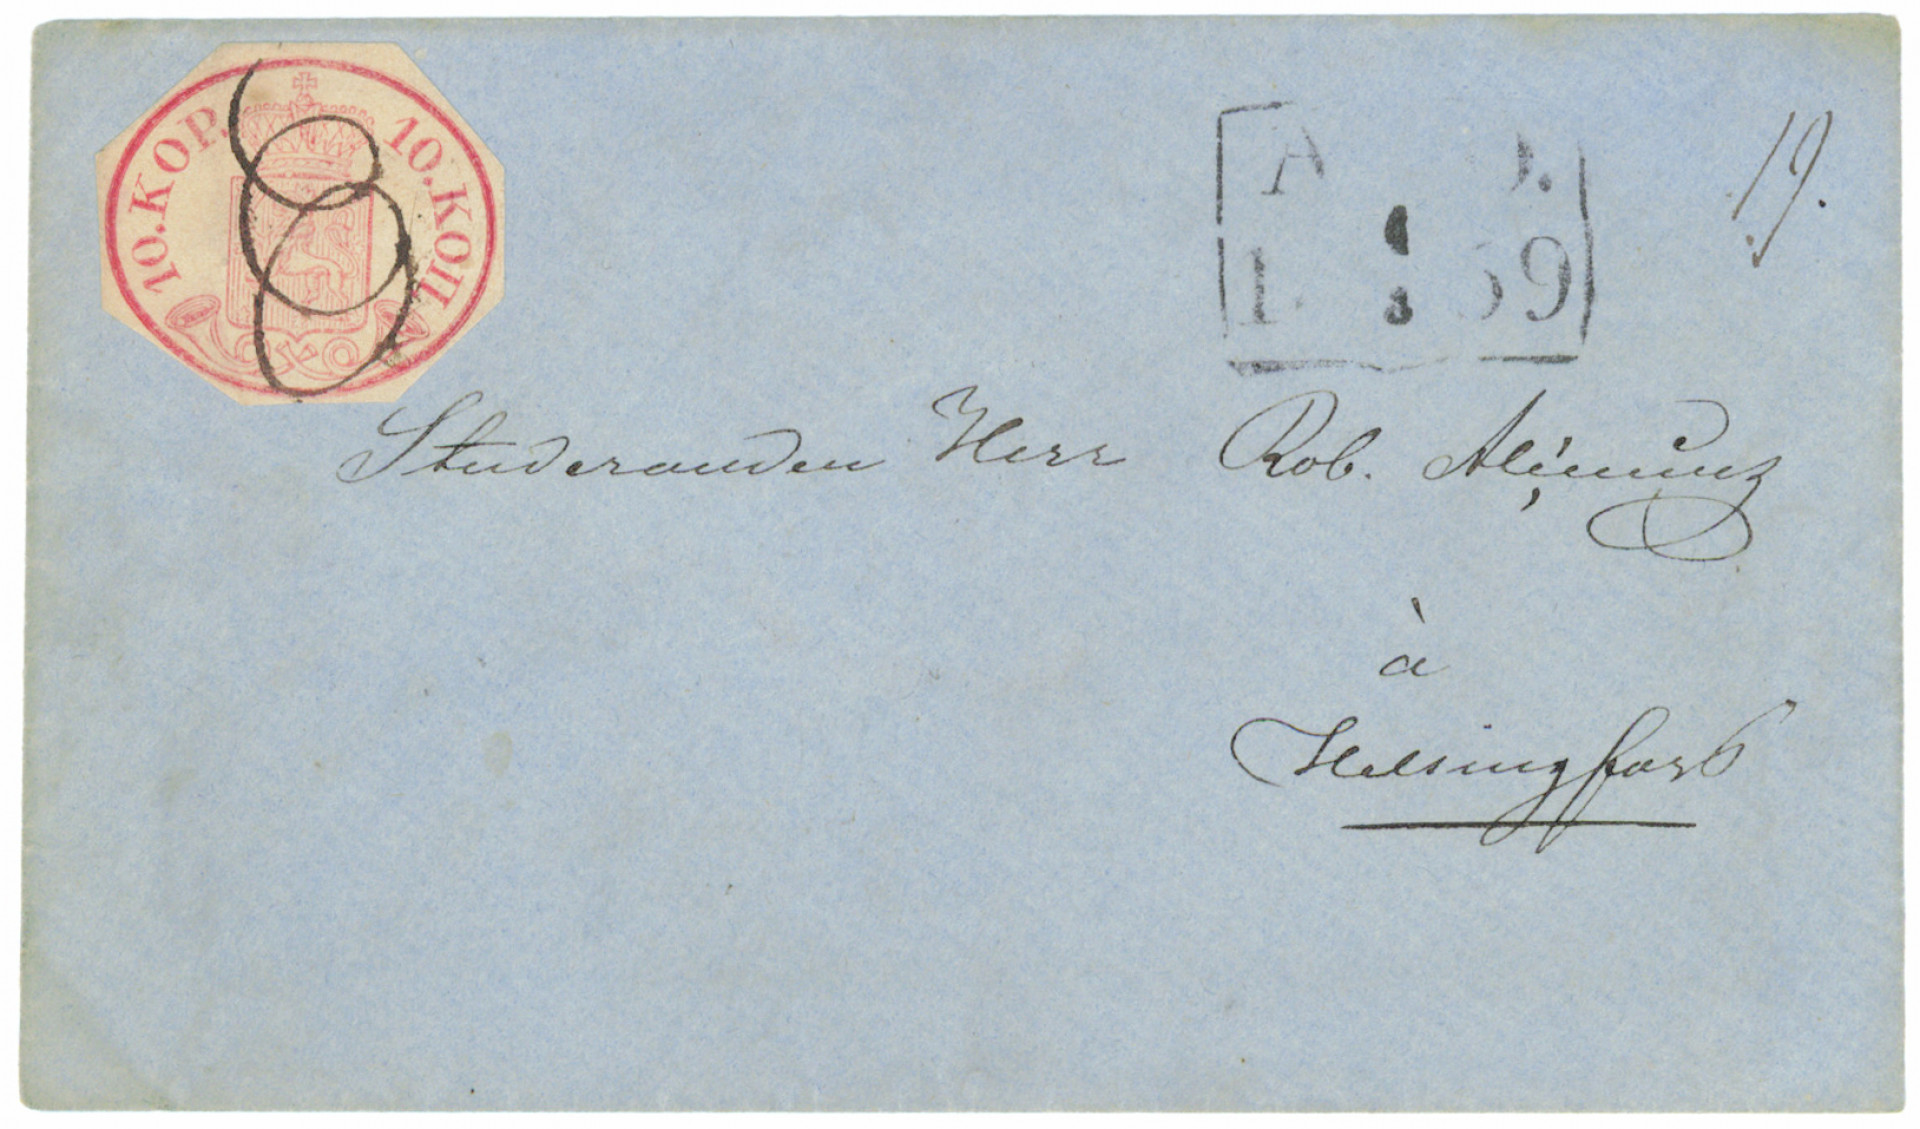 10.KOP. 10.КОП.
19.
Studeranden Herr Rob.
à
Helsingfors